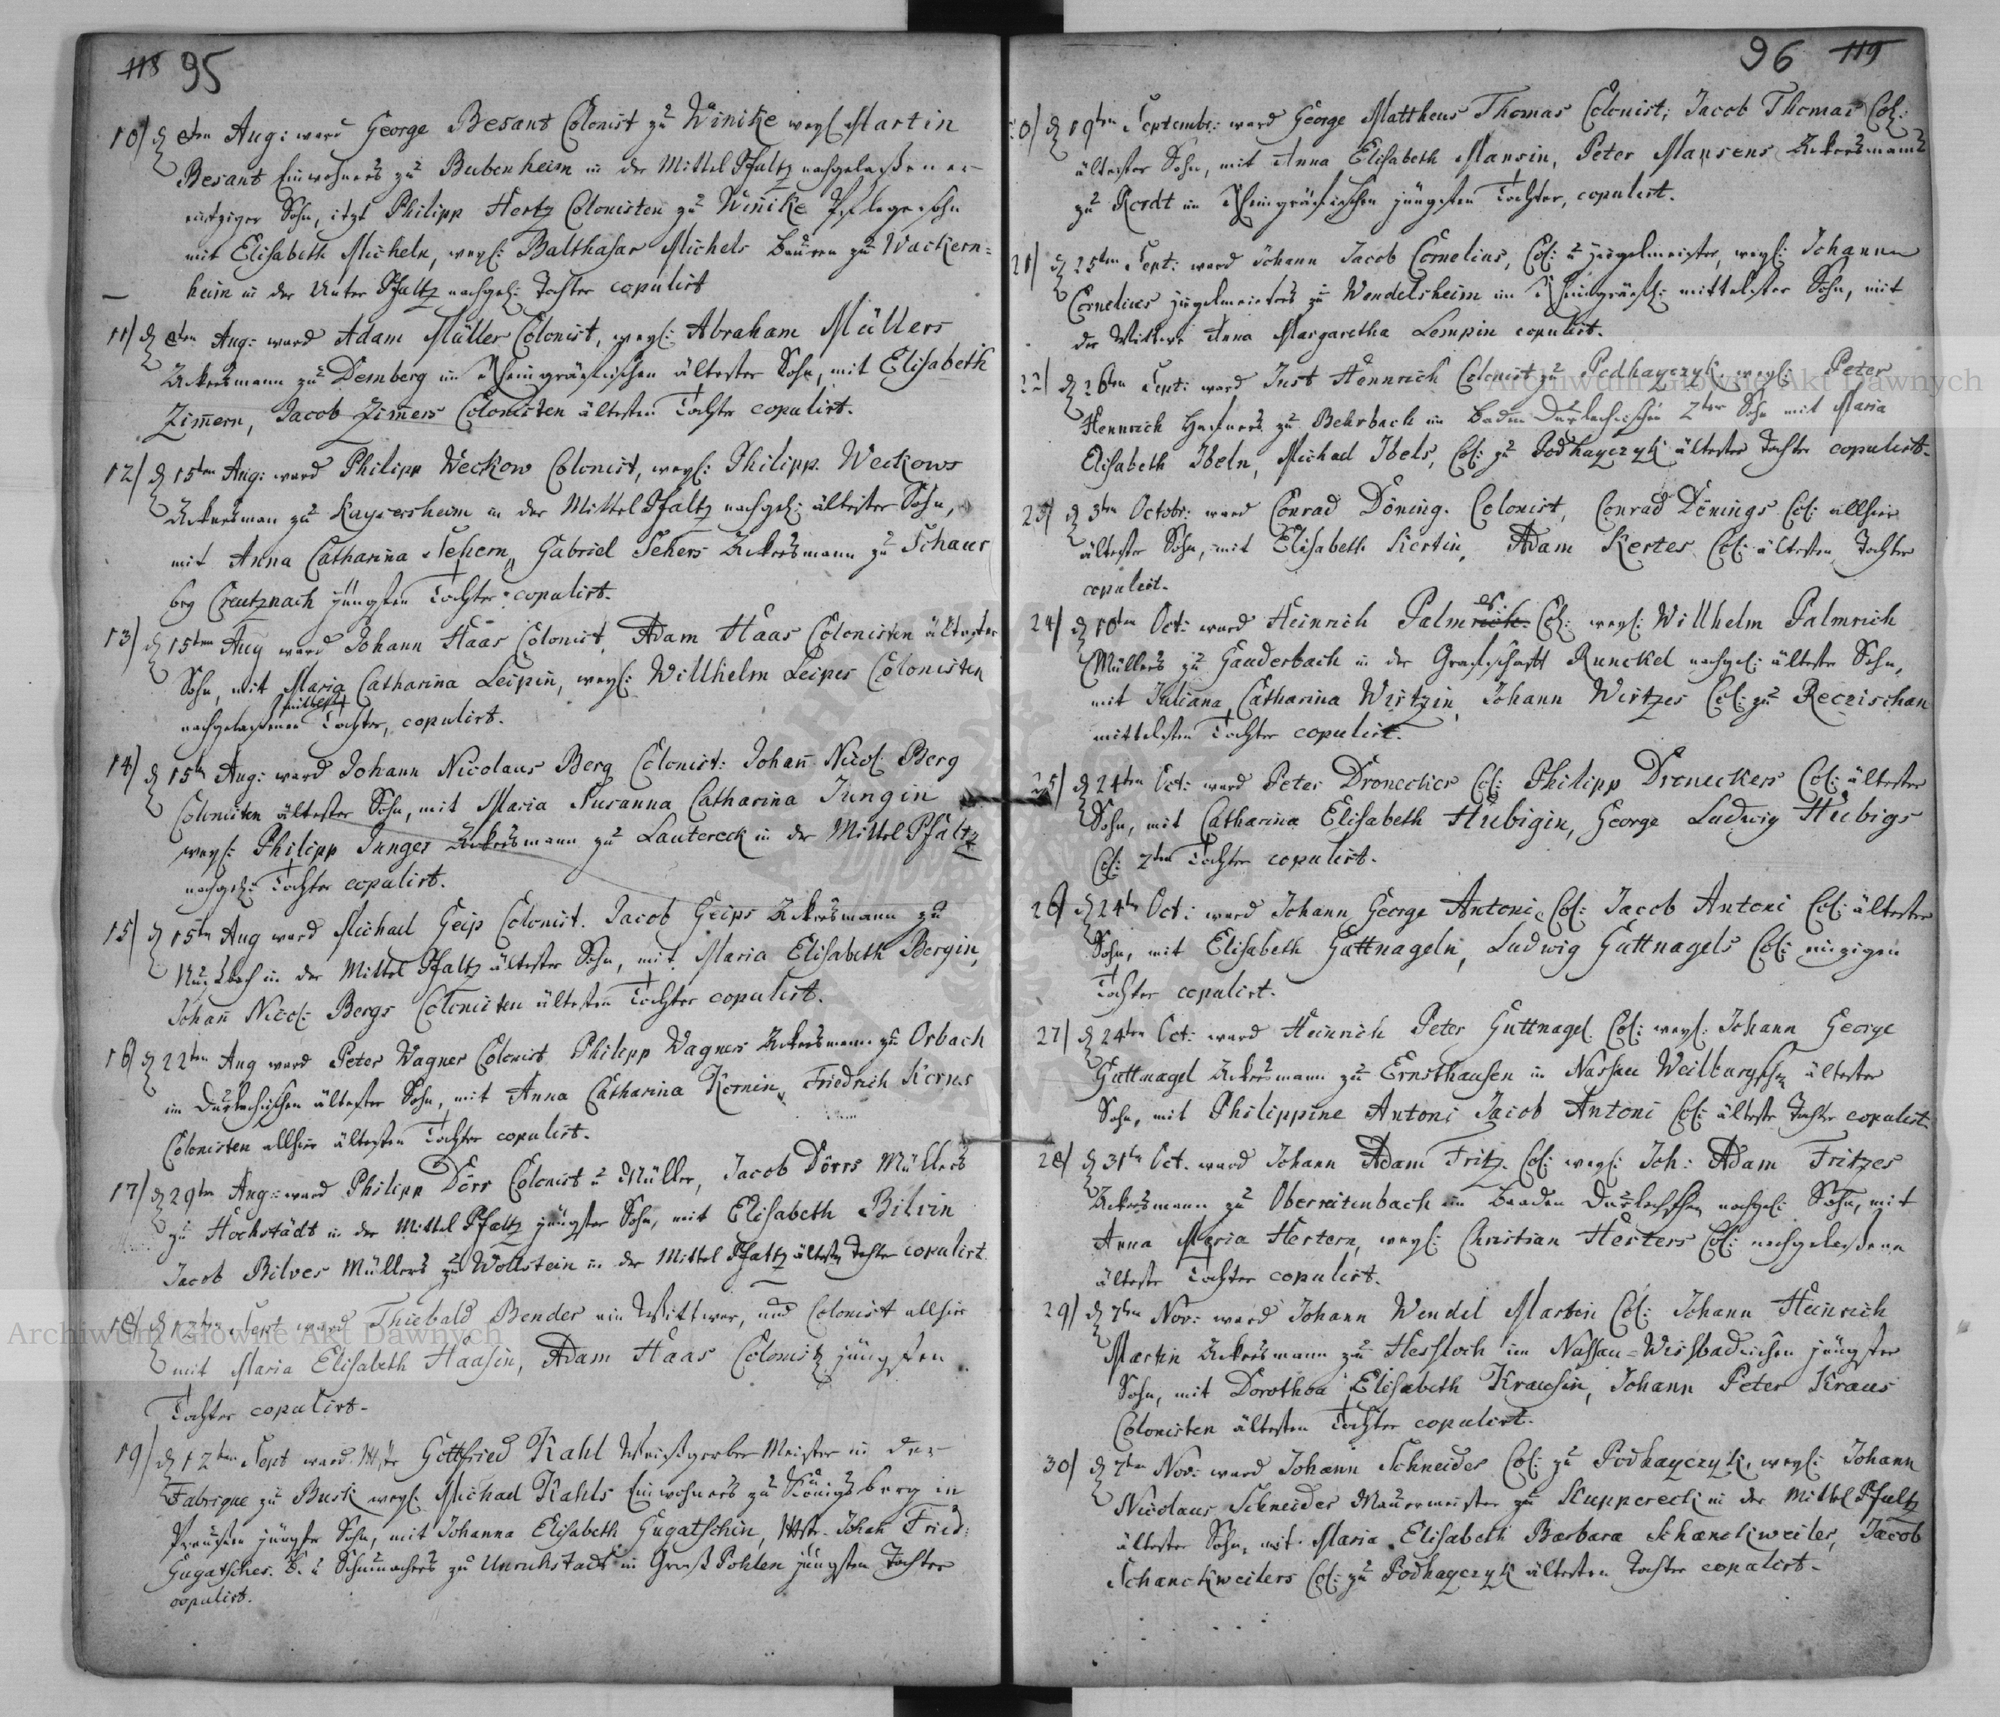 118 95
10/ d. 8ten Aug: ward George Besant Colonist zu Winike weyl. Martin
Besant Einwohners zu Bubenheim in der Mittel Pfaltz nachgelaßener
eintziger Sohn, itzt Philipp Hertz Colonisten zu Winike Pflegesohn
mit Elisabeth Micheln, weyl: Balthasar Michels Bauren zu Wackern=
heim in der Unter Pfaltz nachgel: Tochter copulirt
11/ d. 8ten Aug: ward Adam Müller Colonist, weyl: Abraham Müllers
Ackersmann zu Demberg im Rheingräflischen ältester Sohn, mit Elisabeth
Zim̄ern, Jacob Zim̄ers Colonisten ältesten Tochter copulirt.
12/ d. 15ten Aug: ward Philipp Weckow Colonist, weyl: Philipp Weckows
Ackersman zu Kaysersheim in der Mittel Pfaltz nachgel: ältester Sohn,
mit Anna Catharina Sehern, Gabriel Sehers Ackersmann zu
bey Creutznach jüngsten Tochter copulirt.
13/ d. 15ten Aug ward Johann Haas Colonist, Adam Haas Colonisten ältester
Sohn, mit Maria Catharina Leipin, weyl: Willhelm Leipes Colonisten
nachgelaßenen Tochter, copulirt.
14/ d. 15ten Aug: ward Johann Nicolaus Berg Colonist: Johan̄ Nicol: Berg
Colonisten ältester Sohn, mit Maria Susanna Catharina Jungin
weyl: Philipp Junges Ackersmann zu Lautereck in der Mittel Pfaltz
nachgel: Tochter copulirt.
15/ d. 15ten Aug ward Michael Geip Colonist. Jacob Geips Ackersmann zu
in der Mittel Pfaltz ältester Sohn, mit Maria Elisabeth Bergin,
Johan̄ Nicol: Bergs Colonisten ältesten Tochter copulirt.
16/ d. 22ten Aug ward Peter Wagner Colonist Philipp Wagners Ackersmann zu Orbach
im Durlachischen ältester Sohn, mit Anna Catharina Kernin, Friedrich Kerns
Colonisten allhier ältesten Tochter copulirt.
17/ d. 29ten Aug: ward Philipp Dörr Colonist u Müller, Jacob Dörrs Müllers
zu Hochstädt in der Mittel Pfaltz jüngster Sohn, mit Elisabeth Bilvin
Jacob Bilves Müllers zu Wollstein in der Mittel Pfaltz ältesten Tochter copulirt
18/ d. 12ten Sept ward Thiebald Bender ein Wittwer, und Colonist allhier
mit Maria Elisabeth Haasin, Adam Haas Colonist jüngsten
Tochter copulirt.
19/ d. 12ten Sept ward Mstr Gottfried Kahl Weißgerber Meister in der
Fabrique zu Busk weyl: Michael Kahls Einwohners zu Königsberg in
Preußen jüngster Sohn, mit Johanna Elisabeth Gugatschin, Mstr. Johan Fried:
Gugatsches. B. u Schumachers zu Unruhstadt in Groß Pohlen jüngsten Tochter
copulirt.
96 119
20/ d. 19ten Septembr: ward George Mattheus Thomas Colonist, Jacob Thomas Col:
ältester Sohn, mit Anna Elisabeth Mansin, Peter Mansens Ackersmanns
zu Rordt im Rheingräflischen jüngsten Tochter, copulirt.
21/ d. 25ten Sept: ward Johann Jacob Cornelius, Col: u Zügelmeister, weyl: Johann
Cornelius Zügelmeisters zu Wendelsheim im Rheingräfl: mittelster Sohn, mit
der Wittwe Anna Margaretha Lempin copulirt.
22/ d. 26ten Sept: ward Just Hennrich Colonist zu Podhayczyk, weyl: Peter
Hennrich zu Behrbach im Baden Durlachischen 2ter Sohn mit Maria
Elisabeth Ibeln, Michael Ibels, Col: zu Podhayczyk ältester Tochter copulirt.
23/ d. 3ten Octobr: ward Conrad Döning. Colonist, Conrad Dönings Col: allhier
ältester Sohn, mit Elisabeth Kertin, Adam Kertes Col: ältesten Tochter
copulirt.
24/ d. 10ten Oct: ward Heinrich Palmrich Col: weyl: Willhelm Palmrich
Müllers zu Gauderbach in der Grafschafft Runckel nachgel: ältester Sohn,
mit Juliana Catharina Wirtzin, Johann Wirtzes Col: zu Reczischan
mittelsten Tochter copulirt.
25/ d. 24ten Oct: ward Peter Dronecker Col: Philipp Droneckers Col: ältester
Sohn, mit Catharina Elisabeth Hubigin, George Ludwig Hubigs
Col: 2ten Tochter copulirt.
26/ d. 24ten Oct: ward Johann George Antoni Col: Jacob Antoni Col: ältester
Sohn, mit Elisabeth Guttnageln, Ludwig Guttnagels Col: einzigen
Tochter copulirt.
27/ d. 24ten Oct: ward Heinrich Peter Guttnagel Col: weyl: Johann George
Guttnagel Ackersmann zu Ernsthausen in Nassau Weilburgschen ältester
Sohn, mit Philippine Antoni Jacob Antoni Col: älteste Tochter copulirt.
28/ d. 31ten Oct. ward Johann Adam Fritz. Col: weyl: Joh: Adam Fritzes
Ackersmann zu Oberreitenbach im Baaden Durlachschen nachgel: Sohn, mit
Anna Maria Hertern, weyl: Christian Herters Col: nachgelaßene
älteste Tochter copulirt.
29/ d. 7ten Nov: ward Johann Wendel Martin Col: Johann Heinrich
Martin Ackersmann zu Hessloch im Nassau=Wisbadischen jüngster
Sohn, mit Dorothea Elisabeth Krausin, Johann Peter Kraus
Colonisten ältesten Tochter copulirt.
30/ d. 7ten Nov: ward Johann Schneider Col: zu Podhayczyk, weyl: Johann
Nicolaus Schneider Mauermeister zu Kuppereck in der Mittel Pfaltz
ältester Sohn, mit Maria Elisabeth Barbara Schanckweiler, Jacob
Schanckweilers Col: zu Podhayczyk ältesten Tochter copulirt.
Archiwum Główne Akt Dawnych
Archiwum Główne Akt Dawnych